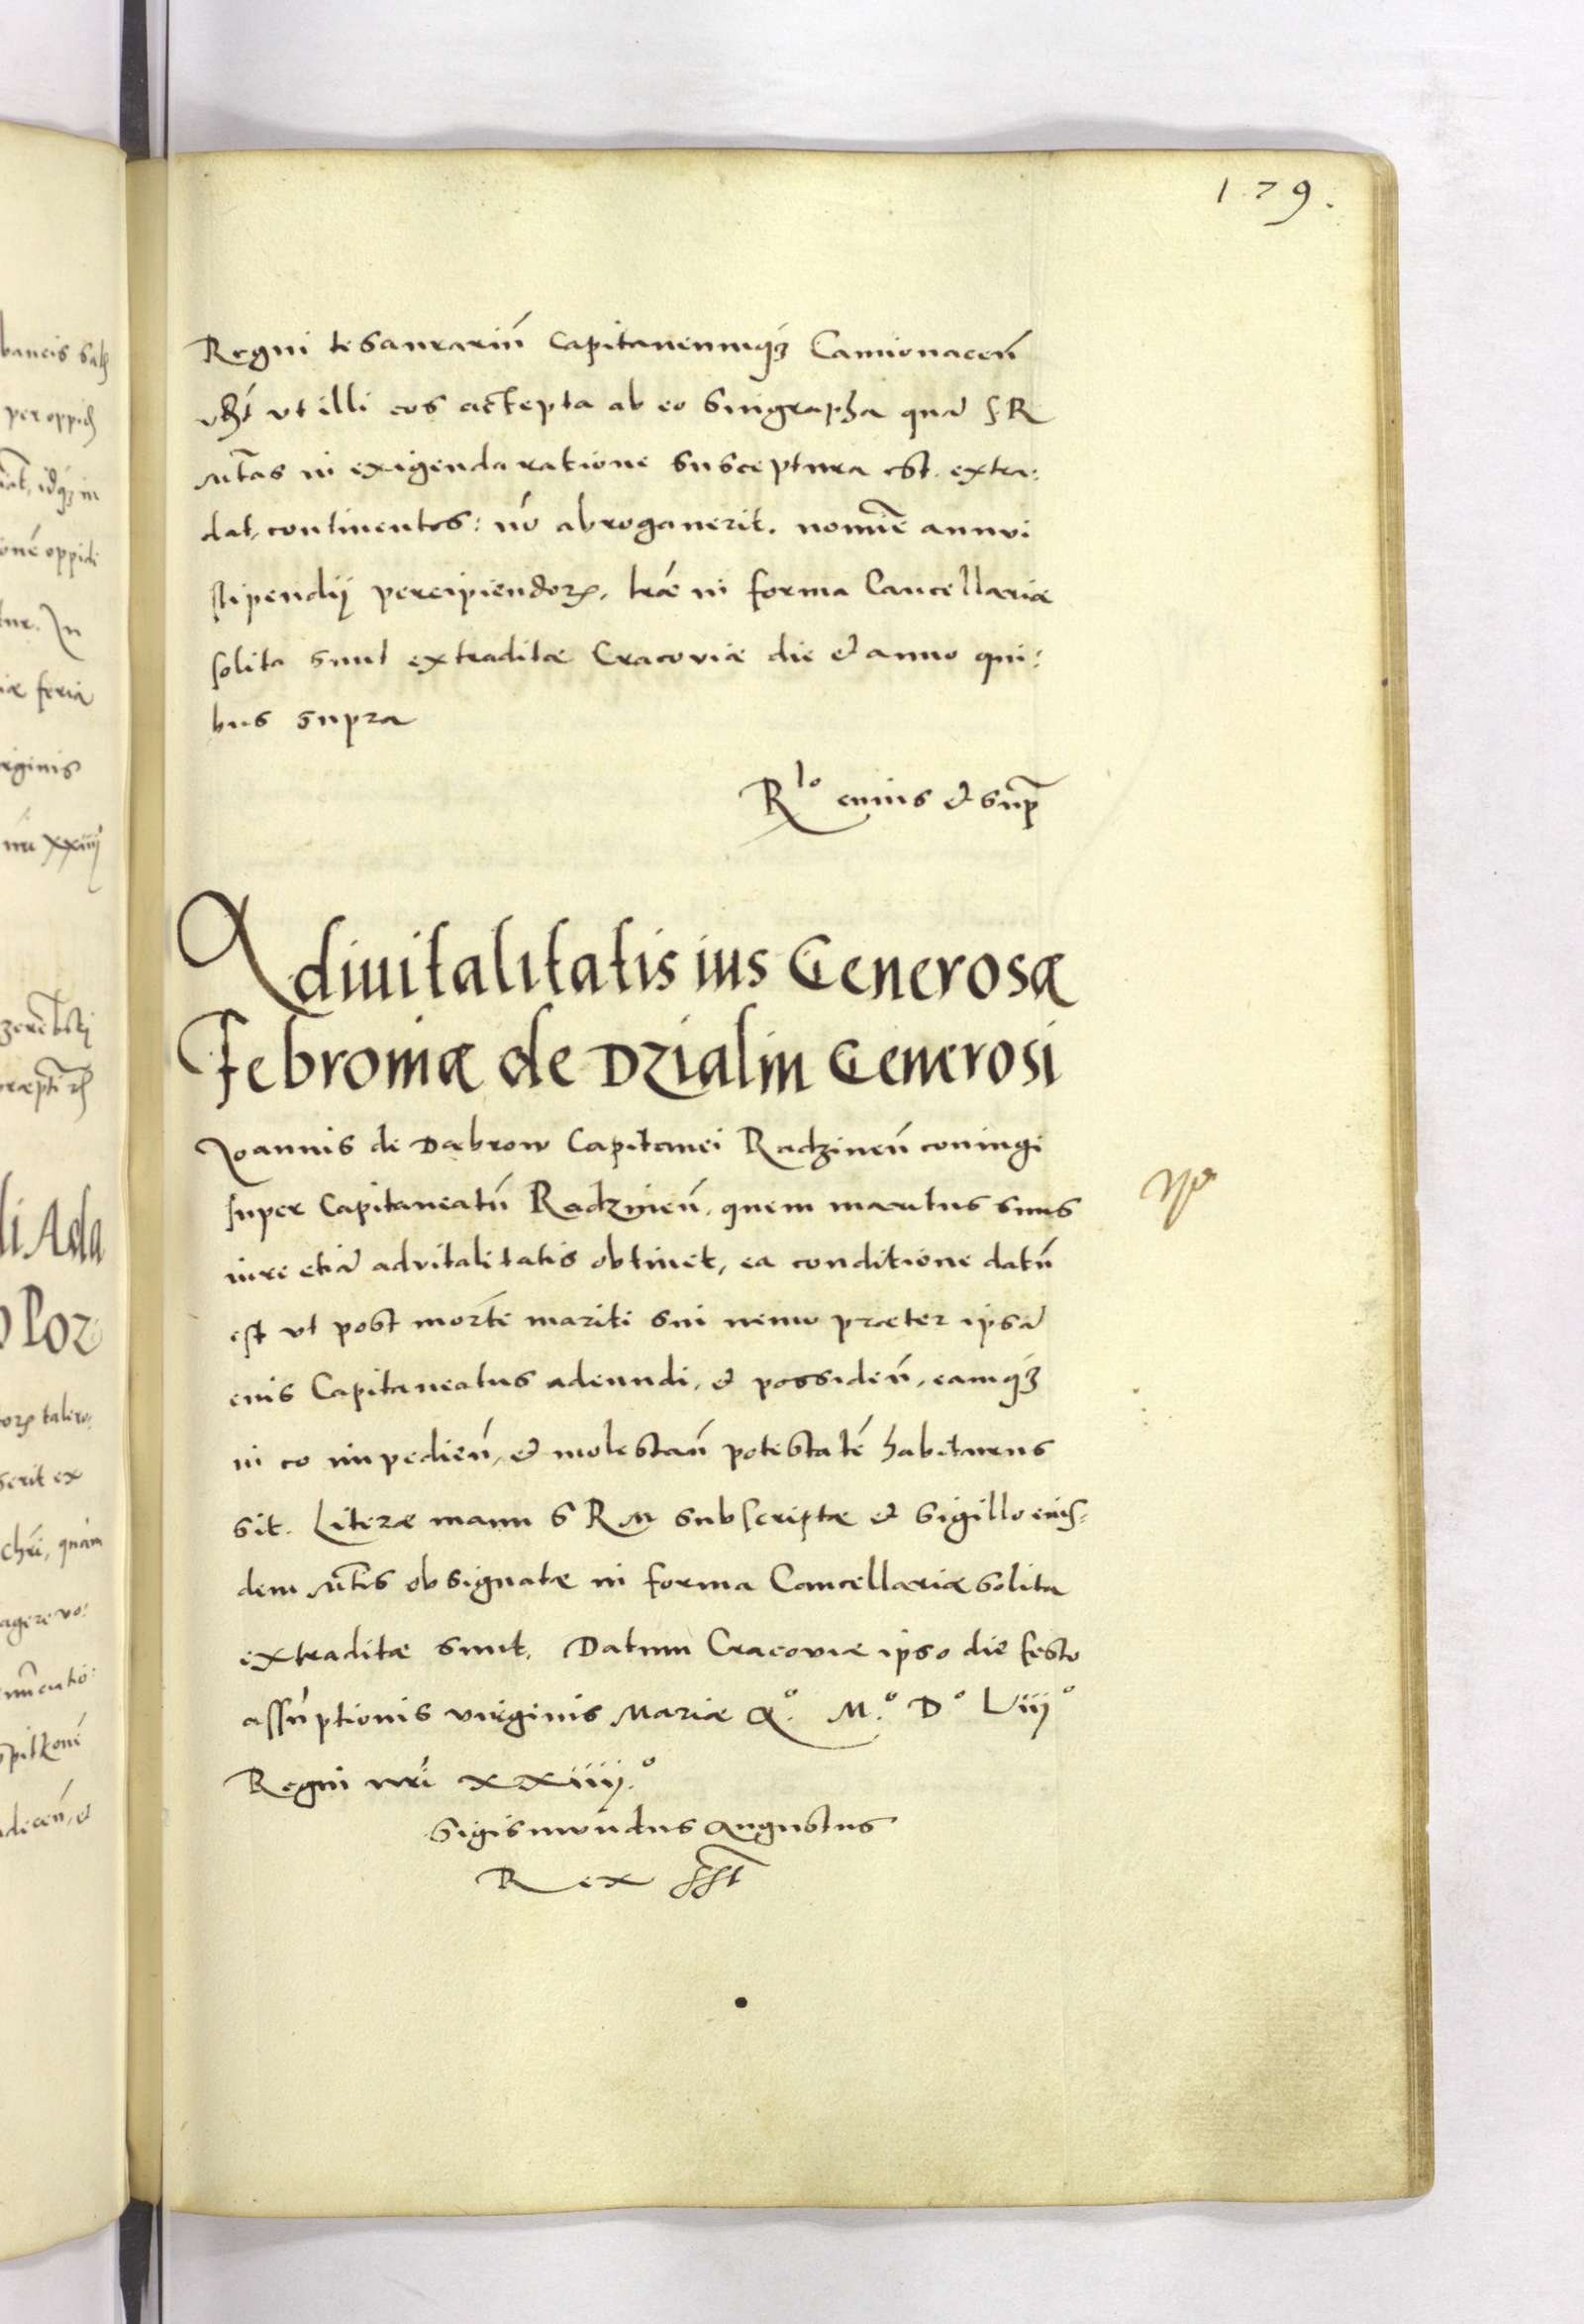 179.
Regni tesaurariũ Capitaneumq́ʒ Camionaceñ
ut illi eos accepta ab eo singrapha quā S R
Mtas in exigenda ratione susceptura est. extra:
dat, continentes: nō abrogauerit. nomiē annui
stipendij percipiendoꝝ, lrae in forma Cancellariae
solita sunt extraditae Cracoviae die et anno qui:
bus supra
Rlo cuius et supͣ
Aduitalitatis ius Generosae
Febroniae de Dzialin Generosi
Joannis de Dabrow Capitanei Radzineñ coniugi
super Capitaneatũ Radzineñ. quem maritus suus
iure etiā advitalitatis obtinet, ea conditione datũ
est ut post mortē mariti sui nemo praeter ipsā
eius Capitaneatus adeundi, et possideñ, eamq́ʒ
in eo impedieñ, et molestañ potestatē habiturus
sit. Literae manu S R M subscriptae et Sigillo eius-
dem Mtis obsignatae in forma Cancellariae solita
extraditae sunt. Datum Cracoviae ipso die festo
assũptionis virginis Mariae A.º M.º Dº Liiijº
Regni nri xxiiij.º
Sigismundus Augustus
Rex sst